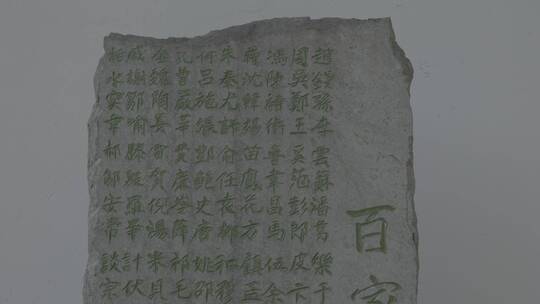 百家
趙錢孫李雲蘇潘葛樂于
周吳鄭王奚范彭郎皮卞
馮陳褚衛魯韋昌馬伍余
蔣沈韓楊苗鳳花方顧孟
朱秦尤許俞任袁柳和穆
何呂施張酆鮑史唐姚邵
孔曹嚴華費廉岑薛祁毛
金魏陶姜雷賀倪湯米貝
戚謝鄒喻滕殷羅畢計伏
柏水竇章郝鄔安常談宋